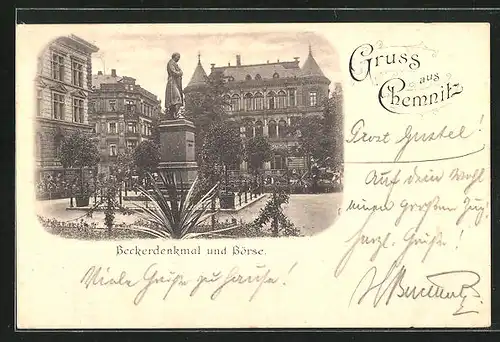 Gruss
aus
Chemnitz
Gustel!
Auf dein Wohl
einen großen Zug!
herzl. Grüße!
Beckerdenkmal und Börse.
Viele Grüße zu Hause!